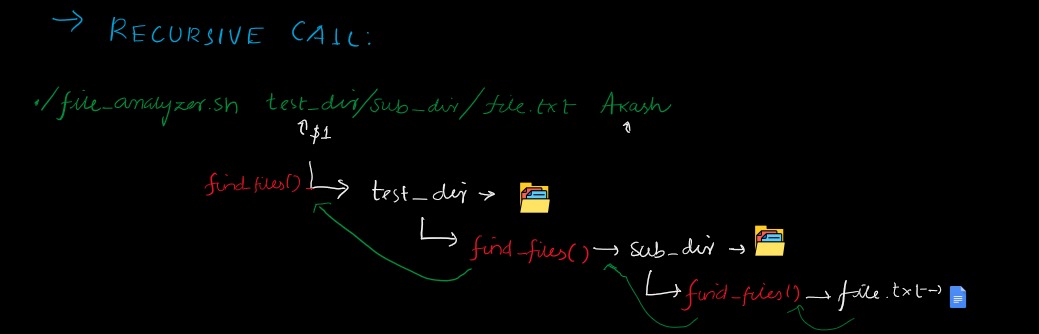 → RECURSIVE CALL:
./file_analyzer.sh test_dir/sub_dir/file.txt Akash
$1
find_files() → test_dir →
find_files() → sub_dir →
find_files() → file.txt →